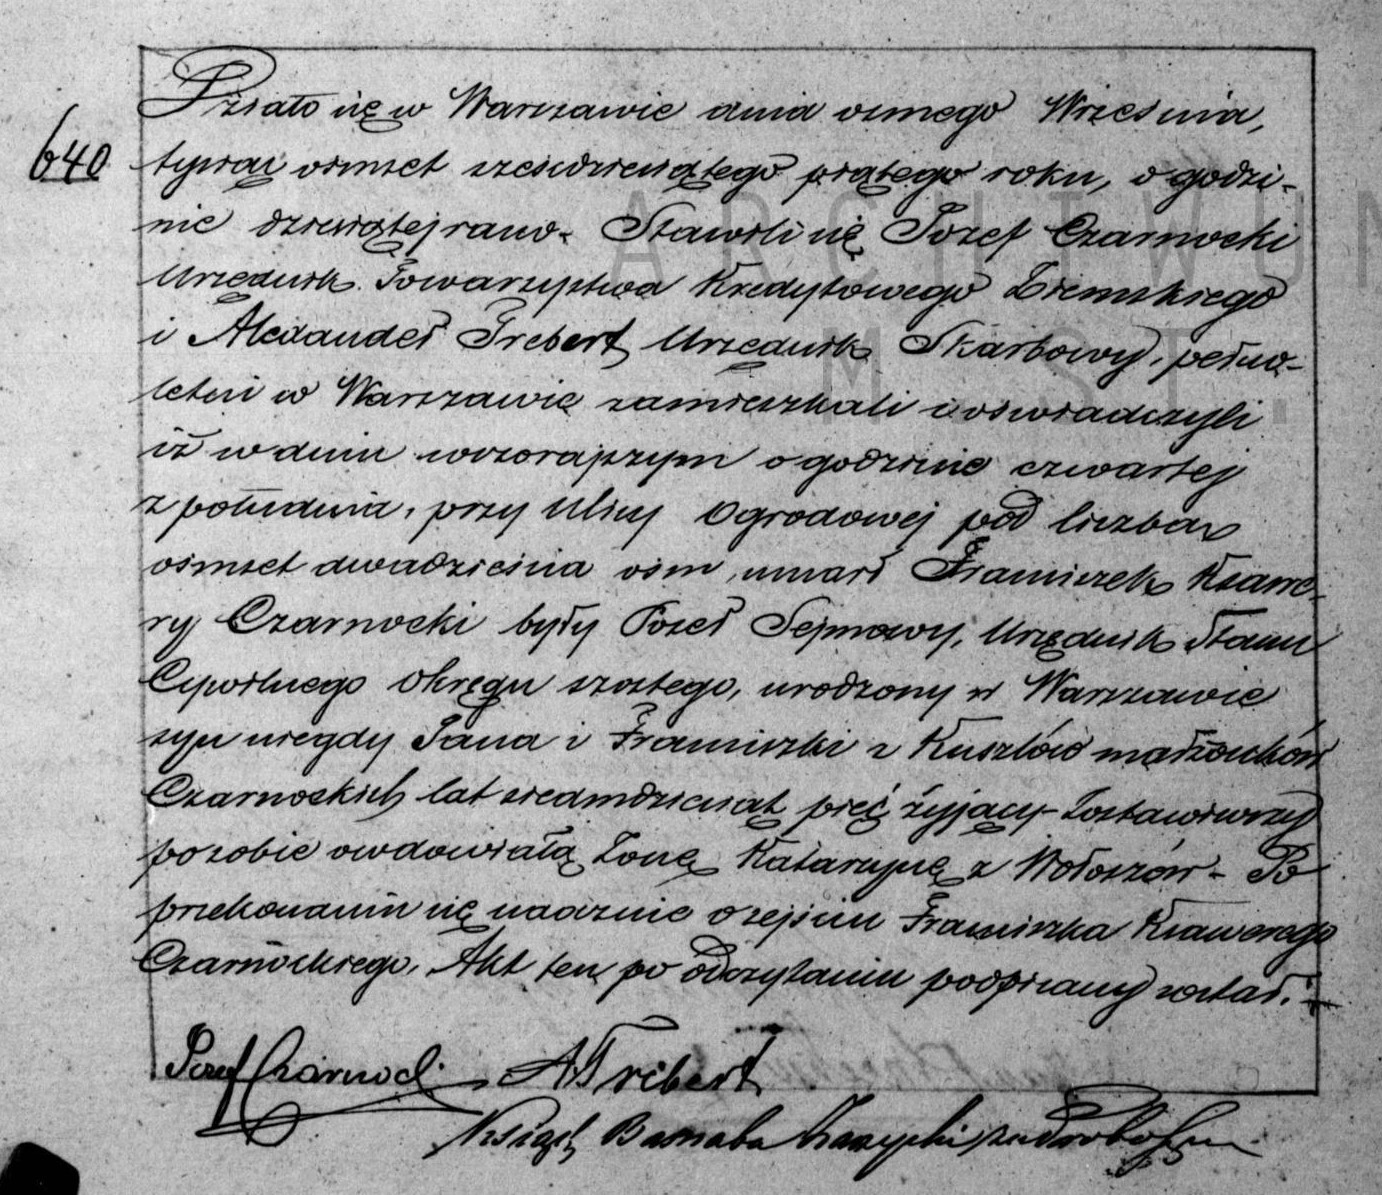 640
Działo się w Warszawie dnia ósmego Września,
tysiąc ośmset sześćdziesiątego piątego roku, o godzi-
nie dziewiątej rano. Stawili się Józef Czarnocki
Urzędnik Towarzystwa Kredytowego Ziemskiego
i Alexander Trebert Urzędnik Skarbowy, pełno-
letni w Warszawie zamieszkali i oświadczyli
iż w dniu wczorajszym o godzinie czwartej
z południa, przy Ulicy Ogrodowej pod liczbą
ośmset dwadzieścia ośm, umarł Franciszek Ksawe-
ry Czarnocki były Poseł Sejmowy, Urzędnik Stanu
Cywilnego Okręgu szóstego, urodzony w Warszawie
syn niegdy Jana i Franciszki z Kuszlów małżonków
Czarnockich lat siedmdziesiąt pięć żyjący - Zostawiwszy
po sobie owdowiałą Żonę Katarzynę z Wołoszów - Po
przekonaniu się naocznie o zejściu Franciszka Ksawerego
Czarnockiego, Akt ten po odczytaniu podpisany został.
Józef Czarnocki A Trebert
Ksiądz Barnaba
ARCHIWUM
M. ST.